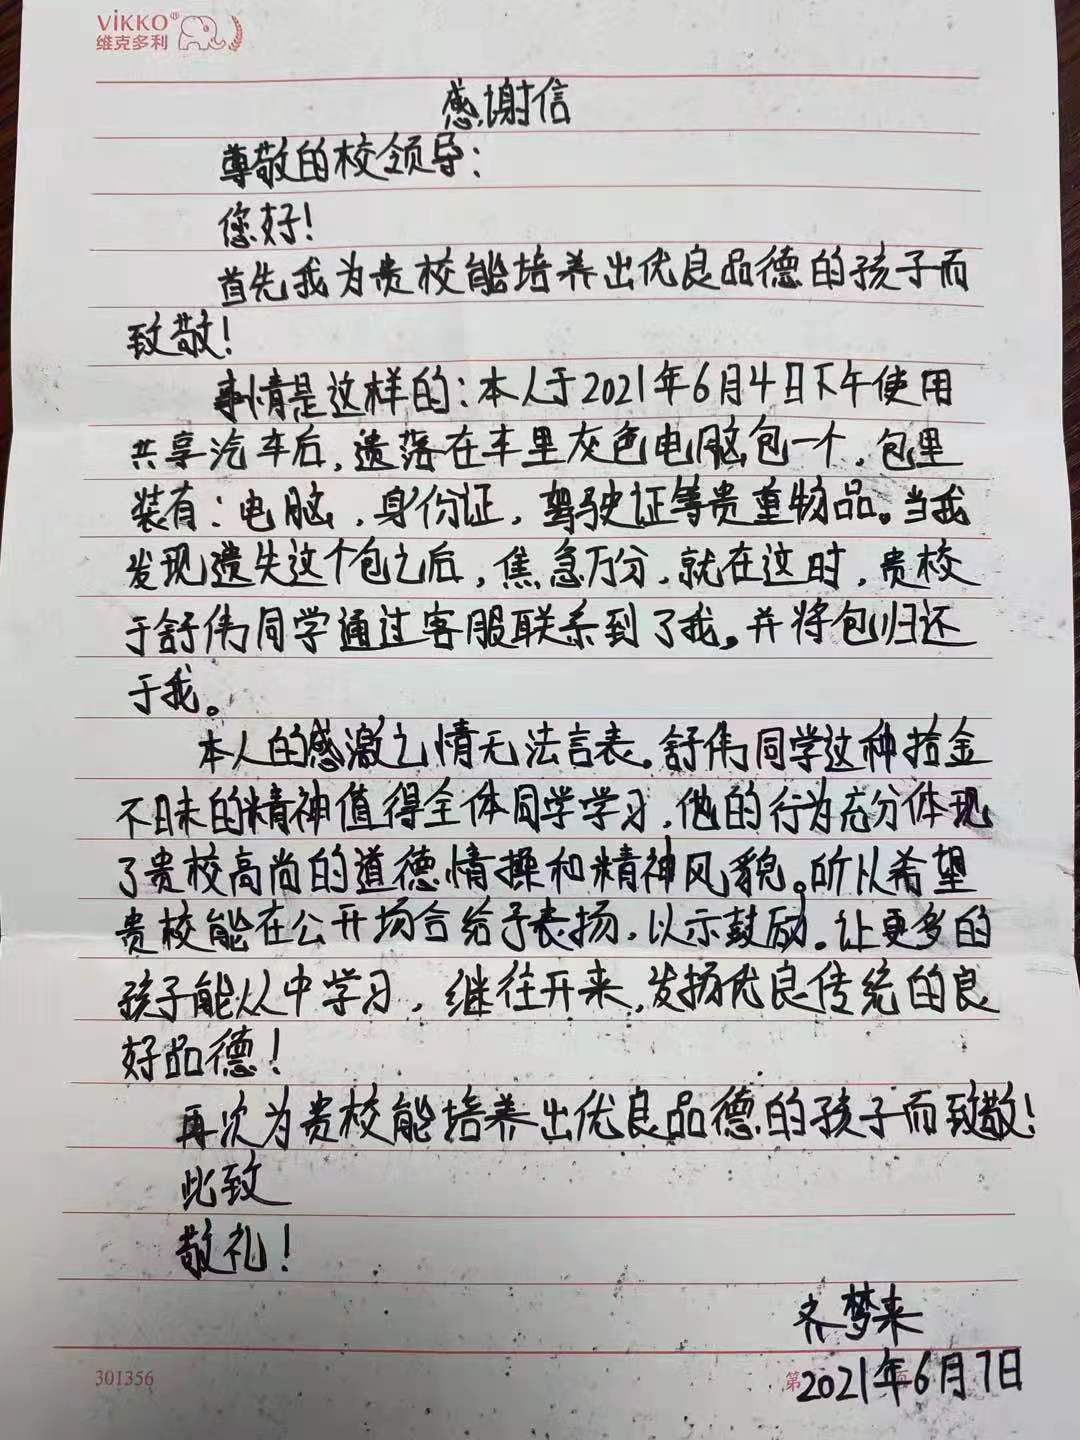 VIKKO®
维克多利
感谢信
尊敬的校领导：
您好！
首先我为贵校能培养出优良品德的孩子而
致敬！
事情是这样的：本人于2021年6月4日下午使用
共享汽车后，遗落在车里灰色电脑包一个，包里
装有：电脑，身份证，驾驶证等贵重物品。当我
发现遗失这个包之后，焦急万分，就在这时，贵校
于舒伟同学通过客服联系到了我。并将包归还
于我。
本人的感激之情无法言表。舒伟同学这种拾金
不昧的精神值得全体同学学习，他的行为充分体现
了贵校高尚的道德情操和精神风貌。所以希望
贵校能在公开场合给予表扬，以示鼓励。让更多的
孩子能从中学习，继往开来，发扬优良传统的良
好品德！
再次为贵校能培养出优良品德的孩子而致敬！
此致
敬礼！
齐梦来
301356
第
2021年6月7日